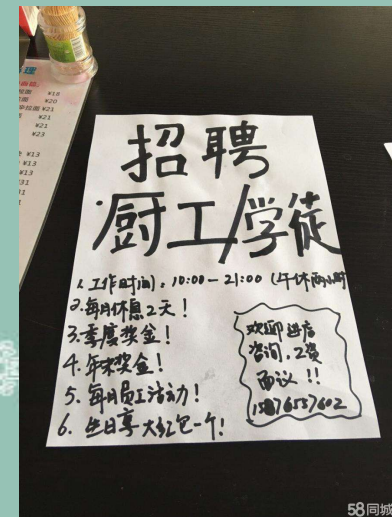 理
¥18
¥20
¥21
¥21
¥23
¥13
¥13
¥13
招聘
厨工/学徒
1.工作时间:10:00-21:00(午休两小时
2.每月休息2天!
3.季度奖金!
4.年末奖金!
5.每月员工活动!
6.生日享大红包一个!
欢迎进店
咨询,工资
面议!!
58同城